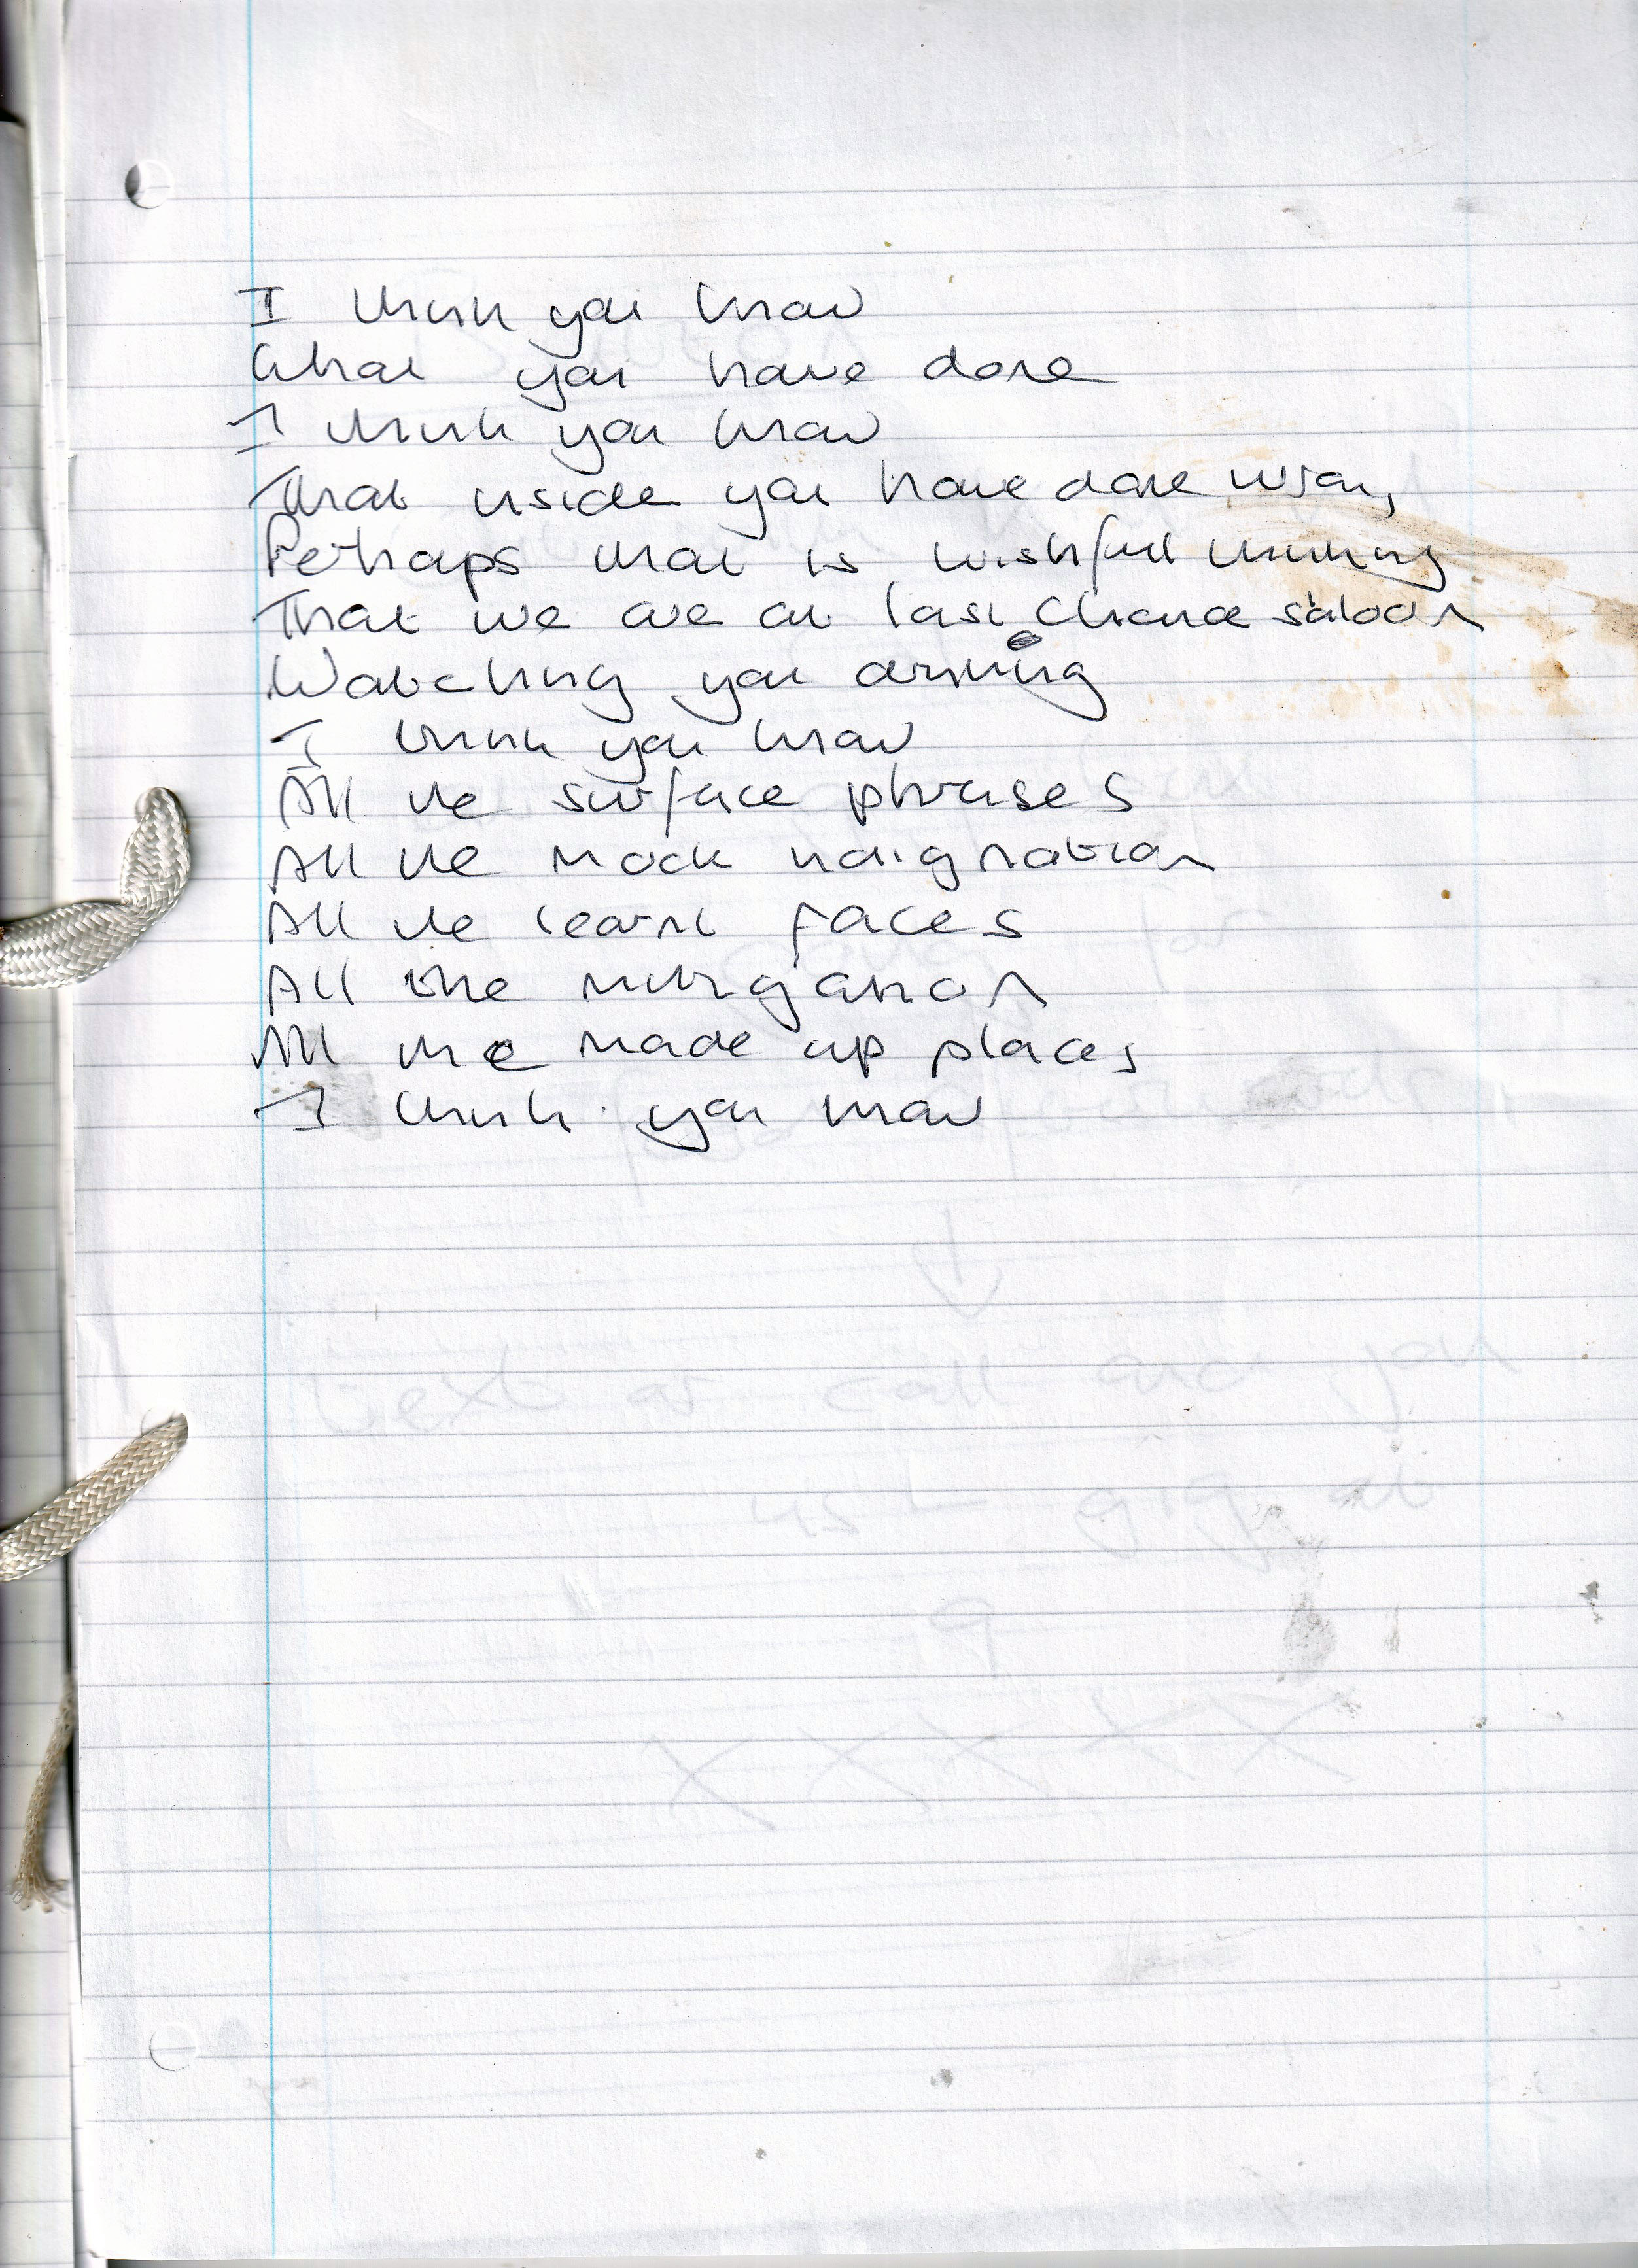 I think you know
What you have done
I think you know
That inside you have done wrong
Perhaps that is wishfull thinking
That we are at last chance saloon
Watching you arriving
I think you know
All the surface phrases
All the mock indignation
All the learnt faces
All the mitigation
All the made up places
I think you know
text or call and you
gig at
XXXXX